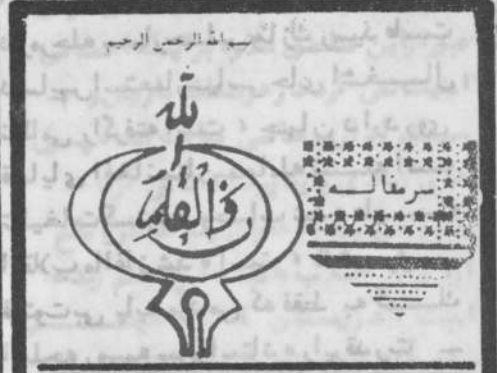 بسم الله الرحمن الرحیم
لله
ن والقلم
سرمقاله